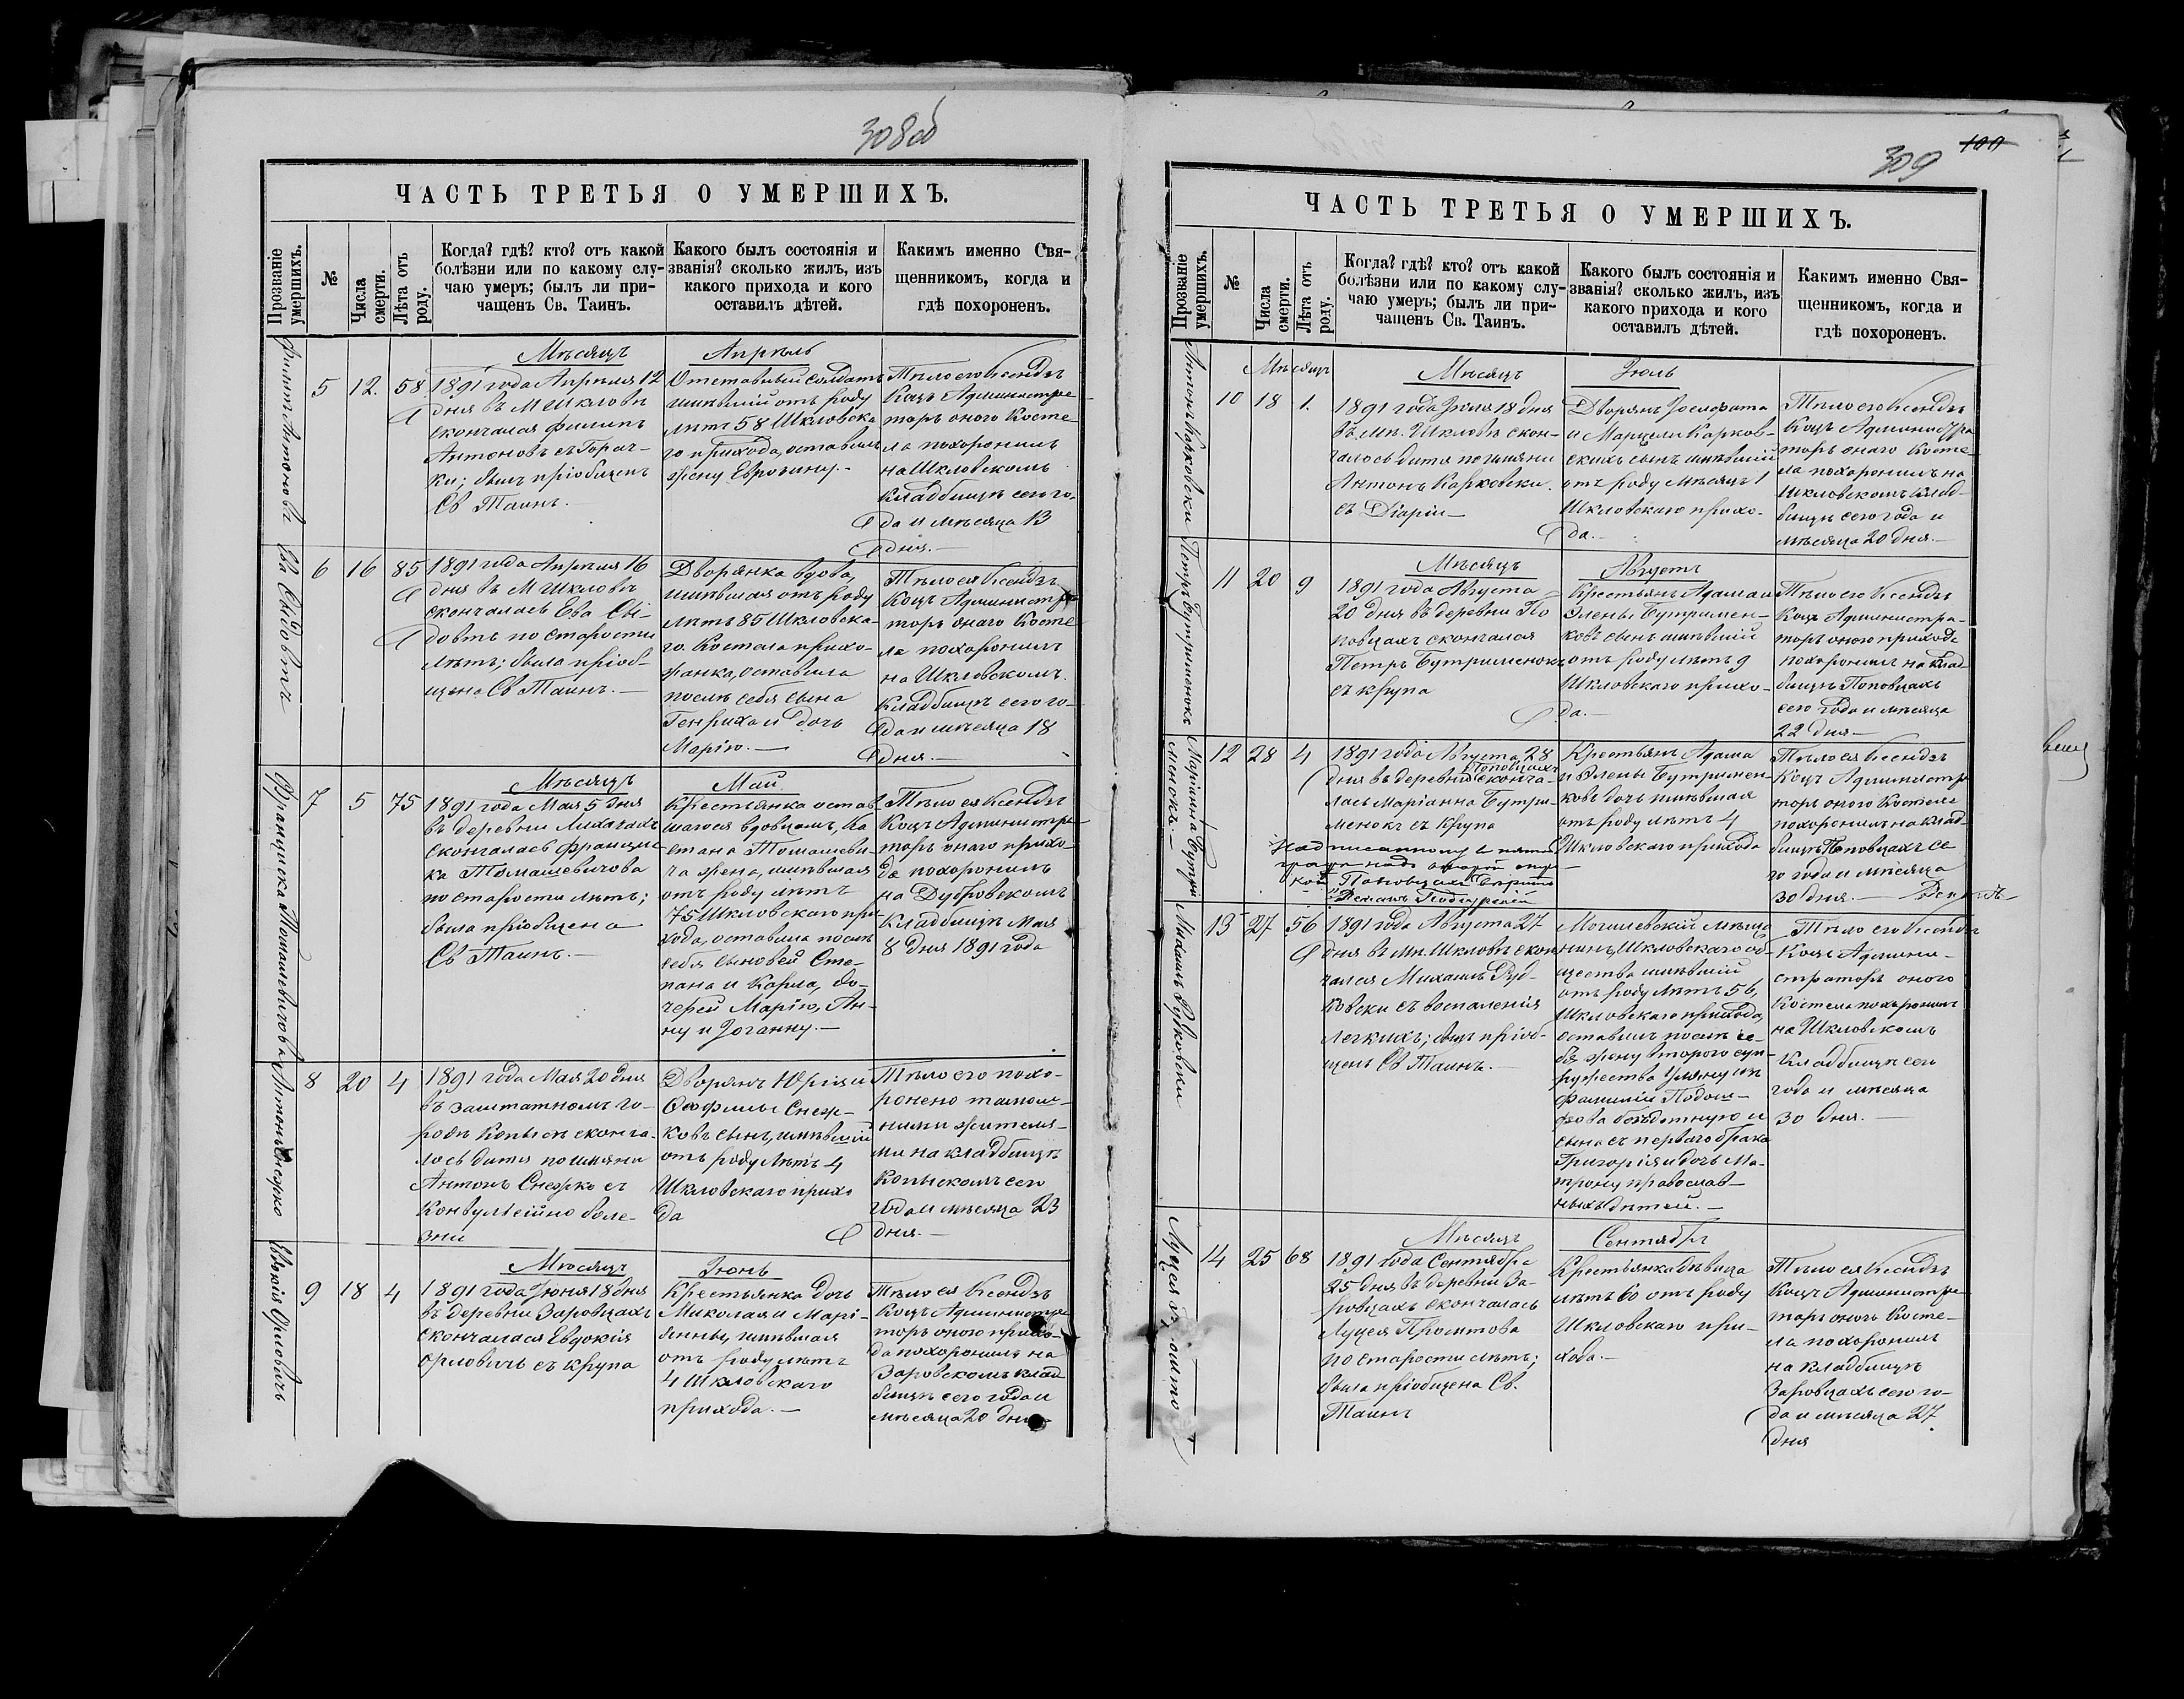 308об
ЧАСТЬ ТРЕТЬЯ О УМЕРШИХЪ.
Прозваніе умершихъ.
№
Числа смерти.
Лѣта отъ роду.
Когда? гдѣ? кто? отъ какой
болѣзни или по какому слу-
чаю умеръ; былъ ли при-
чащенъ Св. Таинъ.
Какого былъ состоянія и
званія? сколько жилъ, изъ
какого прихода и кого
оставилъ дѣтей.
Какимъ именно Свя-
щенникомъ, когда и
гдѣ похороненъ.
Мѣсяцъ Апрѣль
Филипъ Антоновъ
5 12. 58
1891 года Апрѣля 12
дня въ М Шкловѣ
скончался Филипъ
Антоновъ съ Горяч-
ки; былъ пріобщенъ
Св Таинъ.—
Отставный солдатъ
имѣвшій отъ роду
лѣтъ 58 Шкловска
го прихода, оставилъ
жену Евгенину.-
Тѣло его Ксендзъ
Коцъ Администра-
торъ оного Косте
ла похоронилъ
на Шкловскомъ
кладбищѣ сего го-
да и мѣсяца 13
дня.—
Ева Свидовтъ
6 16 85
1891 года Апрѣля 16
дня въ М Шкловѣ
скончалась Ева Сви-
довтъ по старости
лѣтъ; была пріоб-
щена Св Таинъ.—
Дворянка вдова,
имѣвшая отъ роду
лѣтъ 85 Шкловска-
го Костела прихо-
жанка, оставила
послѣ себя сына
Генриха и дочь
Марію.—
Тѣло ея Ксендзъ
Коцъ Администра
торъ оного Косте
ла похоронилъ
на Шкловскомъ
кладбищѣ сего го-
да и мѣсяца 18
дня.—
Мѣсяцъ Май
Франциска Томашевичова
7 5 75
1891 года Мая 5 дня
въ деревни Лихачахъ
скончалась Францис-
ка Томашевичова
по старости лѣтъ;
была пріобщена
Св Таинъ.—
Крестьянка остав-
шагося вдовцомъ, Ка
етана Томашеви-
ча жена, имѣвшая
отъ роду лѣтъ
75 Шкловскаго при
хода, оставила послѣ
себя сыновей Сте-
пана и Карла, до-
черей Марію, Ан-
ну и Іоганну.—
Тѣло ея Ксендзъ
Коцъ Администра-
торъ оного прихо-
да похоронилъ
на Дубровскомъ
кладбищѣ Мая
8 дня 1891 года
Антонъ Снежко
8 20 4
1891 года Мая 20 дня
въ заштатномъ го-
родѣ Копысѣ сконча-
лось дитя по имяни
Антонъ Снежко съ
Конвульсійно боле-
зни
Дворянъ Юрія и
Феофилы Снеж-
ковъ сынъ, имѣвшій
отъ роду лѣтъ 4
Шкловскаго прихо
да
Тѣло его похо-
ронено тамош-
ними жителя-
ми на кладбищѣ
Копыскомъ сего
года и мѣсяца 23
дня.—
Мѣсяцъ Іюнь
Евдокія Орловичъ
9 18 4
1891 года Іюня 18 дня
въ деревни Заровцахъ
скончалася Евдокія
Орловичъ съ крупа
Крестьянка дочь
Миколая и Марі-
янны, имѣвшая
отъ роду лѣтъ
4 Шкловскаго
прихода.—
Тѣло ея Ксендзъ
Коцъ Администра
торъ оного прихо-
да похоронилъ на
Заровскомъ клад
бищѣ сего года и
мѣсяца 20 дня
100
309
ЧАСТЬ ТРЕТЬЯ О УМЕРШИХЪ.
Прозваніе умершихъ.
№
Числа смерти.
Лѣта отъ роду.
Когда? гдѣ? кто? отъ какой
болѣзни или по какому слу-
чаю умеръ; былъ ли при-
чащенъ Св. Таинъ.
Какого былъ состоянія и
званія? сколько жилъ, изъ
какого прихода и кого
оставилъ дѣтей.
Какимъ именно Свя-
щенникомъ, когда и
гдѣ похороненъ.
Мѣсяцъ
Мѣсяцъ Іюль
Антонъ Карковски
10 18 1.
1891 года Іюля 18 дня
въ Мѣ. Шкловѣ скон-
чалось дитя по имяни
Антонъ Карковски
съ Діаріи—
Дворянъ Іосафата
и Марцели Карков-
скихъ сынъ имѣвшій
отъ роду мѣсяцъ 1
Шкловскаго прихо-
да.—
Тѣло его Ксендзъ
Коцъ Администра
торъ оного Косте
ла похоронилъ на
Шкловскомъ клад-
бищѣ сего года и
мѣсяца 20 дня.—
Мѣсяцъ Августъ
Петръ Бутрименокъ
11 20 9
1891 года Августа
20 дня въ деревни По
повцахъ скончался
Петръ Бутрименокъ
съ крупа
Крестьянъ Адама и
Элены Бутримен-
ковъ сынъ имѣвшій
отъ роду лѣтъ 9
Шкловскаго прихо-
да.—
Тѣло его Ксендзъ
Коцъ Администра-
торъ оного прихода
похоронилъ на клад-
бищѣ Поповцахъ
сего года и мѣсяца
22 дня—
Маріанна Бутри
менокъ.—
12 28 4
1891 года Августа 28
Поповцахъ
дня въ деревни сконча-
лась Маріанна Бутри-
менокъ съ крупа
Крестьянъ Адама
и Элены Бутримен-
ковъ дочь имѣвшая
отъ роду лѣтъ 4
Шкловскаго прихода
Тѣло ея Ксендзъ
Коцъ Администра
торъ оного Костела
похоронилъ на клад-
бищѣ Поповцахъ се
го года и мѣсяца
30 дня.—
Надписанному въ пятой
графѣ надъ второй стро
кой „Поповцахъ" вѣрить
Михаилъ Рутковски
13 27 56
1891 года Августа 27
дня въ Мѣ. Шкловѣ скон
чался Михаилъ Рут-
ковски съ воспаленія
легкихъ; былъ пріоб-
щенъ Св Таинъ.—
Могилевскій мѣща
нинъ, Шкловскаго об-
щества имѣвшій
отъ роду лѣтъ 56,
Шкловскаго прихода,
оставилъ послѣ се-
бя жену второго суп-
ружества Ульяну изъ
фамиліи Подош-
вова бездѣтную и
сына съ перваго брака
Григорія и дочь Ма-
трону православ-
ныхъ дѣтей.—
Тѣло его Ксендзъ
Коцъ Админи-
страторъ оного
Костела похоронилъ
на Шкловскомъ
кладбищѣ сего
года и мѣсяца
30 дня.—
Мѣсяцъ Сентябрь
14 25 68
1891 года Сентября
25 дня въ деревни За-
ровцахъ скончалась
Луцея Промтова
по старости лѣтъ;
была пріобщена Св.
Таинъ
Крестьянка дѣвица
лѣтъ 60 отъ роду
Шкловскаго при-
хода.—
Тѣло ея Ксендзъ
Коцъ Администра
торъ оного Косте-
ла похоронилъ
на кладбищѣ
Заровцахъ сего го-
да и мѣсяца 27
дня